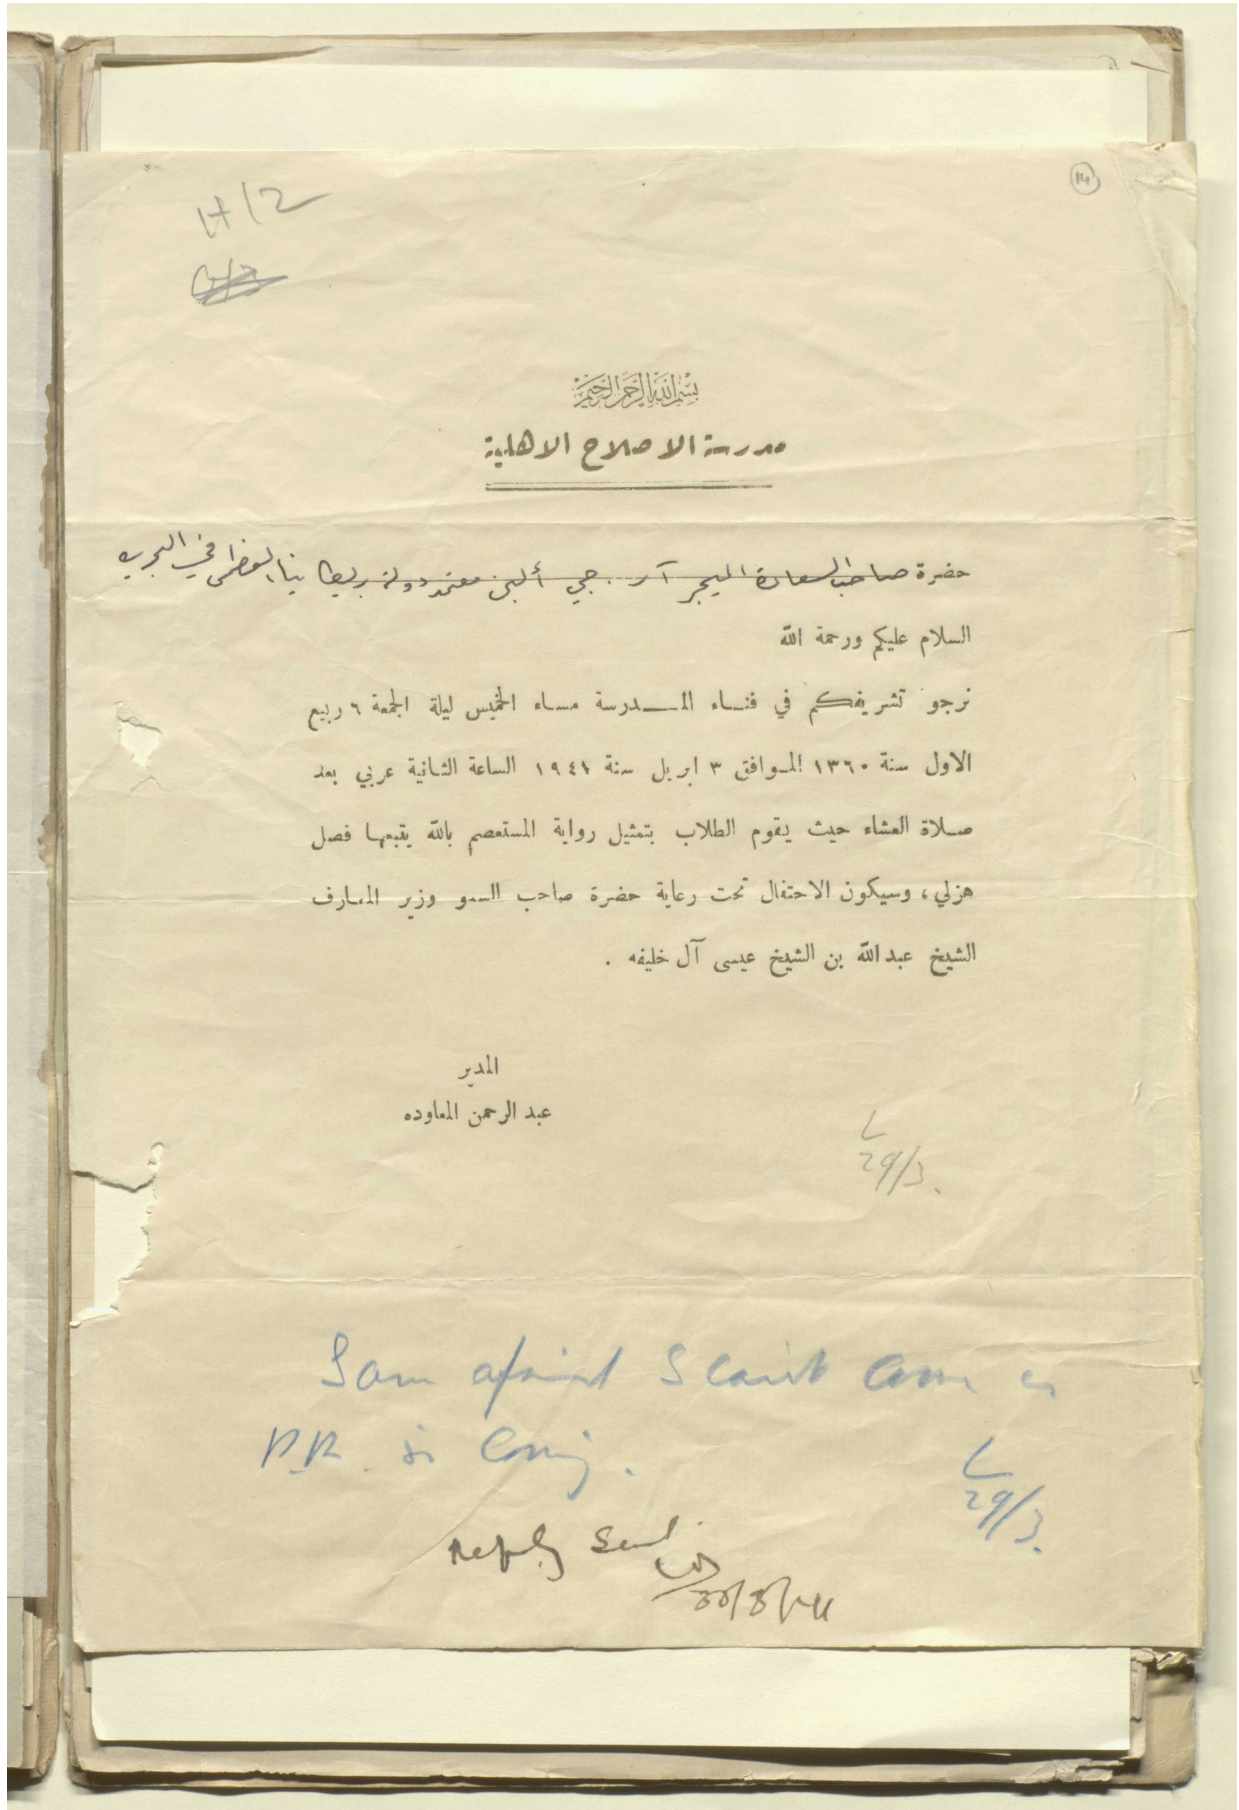 14
H/2
بسم الله الرحمن الرحيم
مدرسة الاصلاح الاهلية
حضرة صاحب السعادة الميجر آر. جي ألبن معتمد دولة بريطانيا العظمى في البحرين
السلام عليكم ورحمة الله
نرجو تشريفكم في فناء المدرسة مساء الخميس ليلة الجمعة ٦ ربيع
الاول سنة ١٣٦٠ الموافق ٣ ابريل سنة ١٩٤١ الساعة الثانية عربي بعد
صلاة العشاء حيث يقوم الطلاب بتمثيل رواية المستعصم بالله يتبعها فصل
هزلي، وسيكون الاحتفال تحت رعاية حضرة صاحب السمو وزير المعارف
الشيخ عبد الله بن الشيخ عيسى آل خليفه .
المدير
عبد الرحمن المعاوده
29/3.
I am afraid I can't come as
P.R. is coming.
29/3.
Reply sent
30/3/41